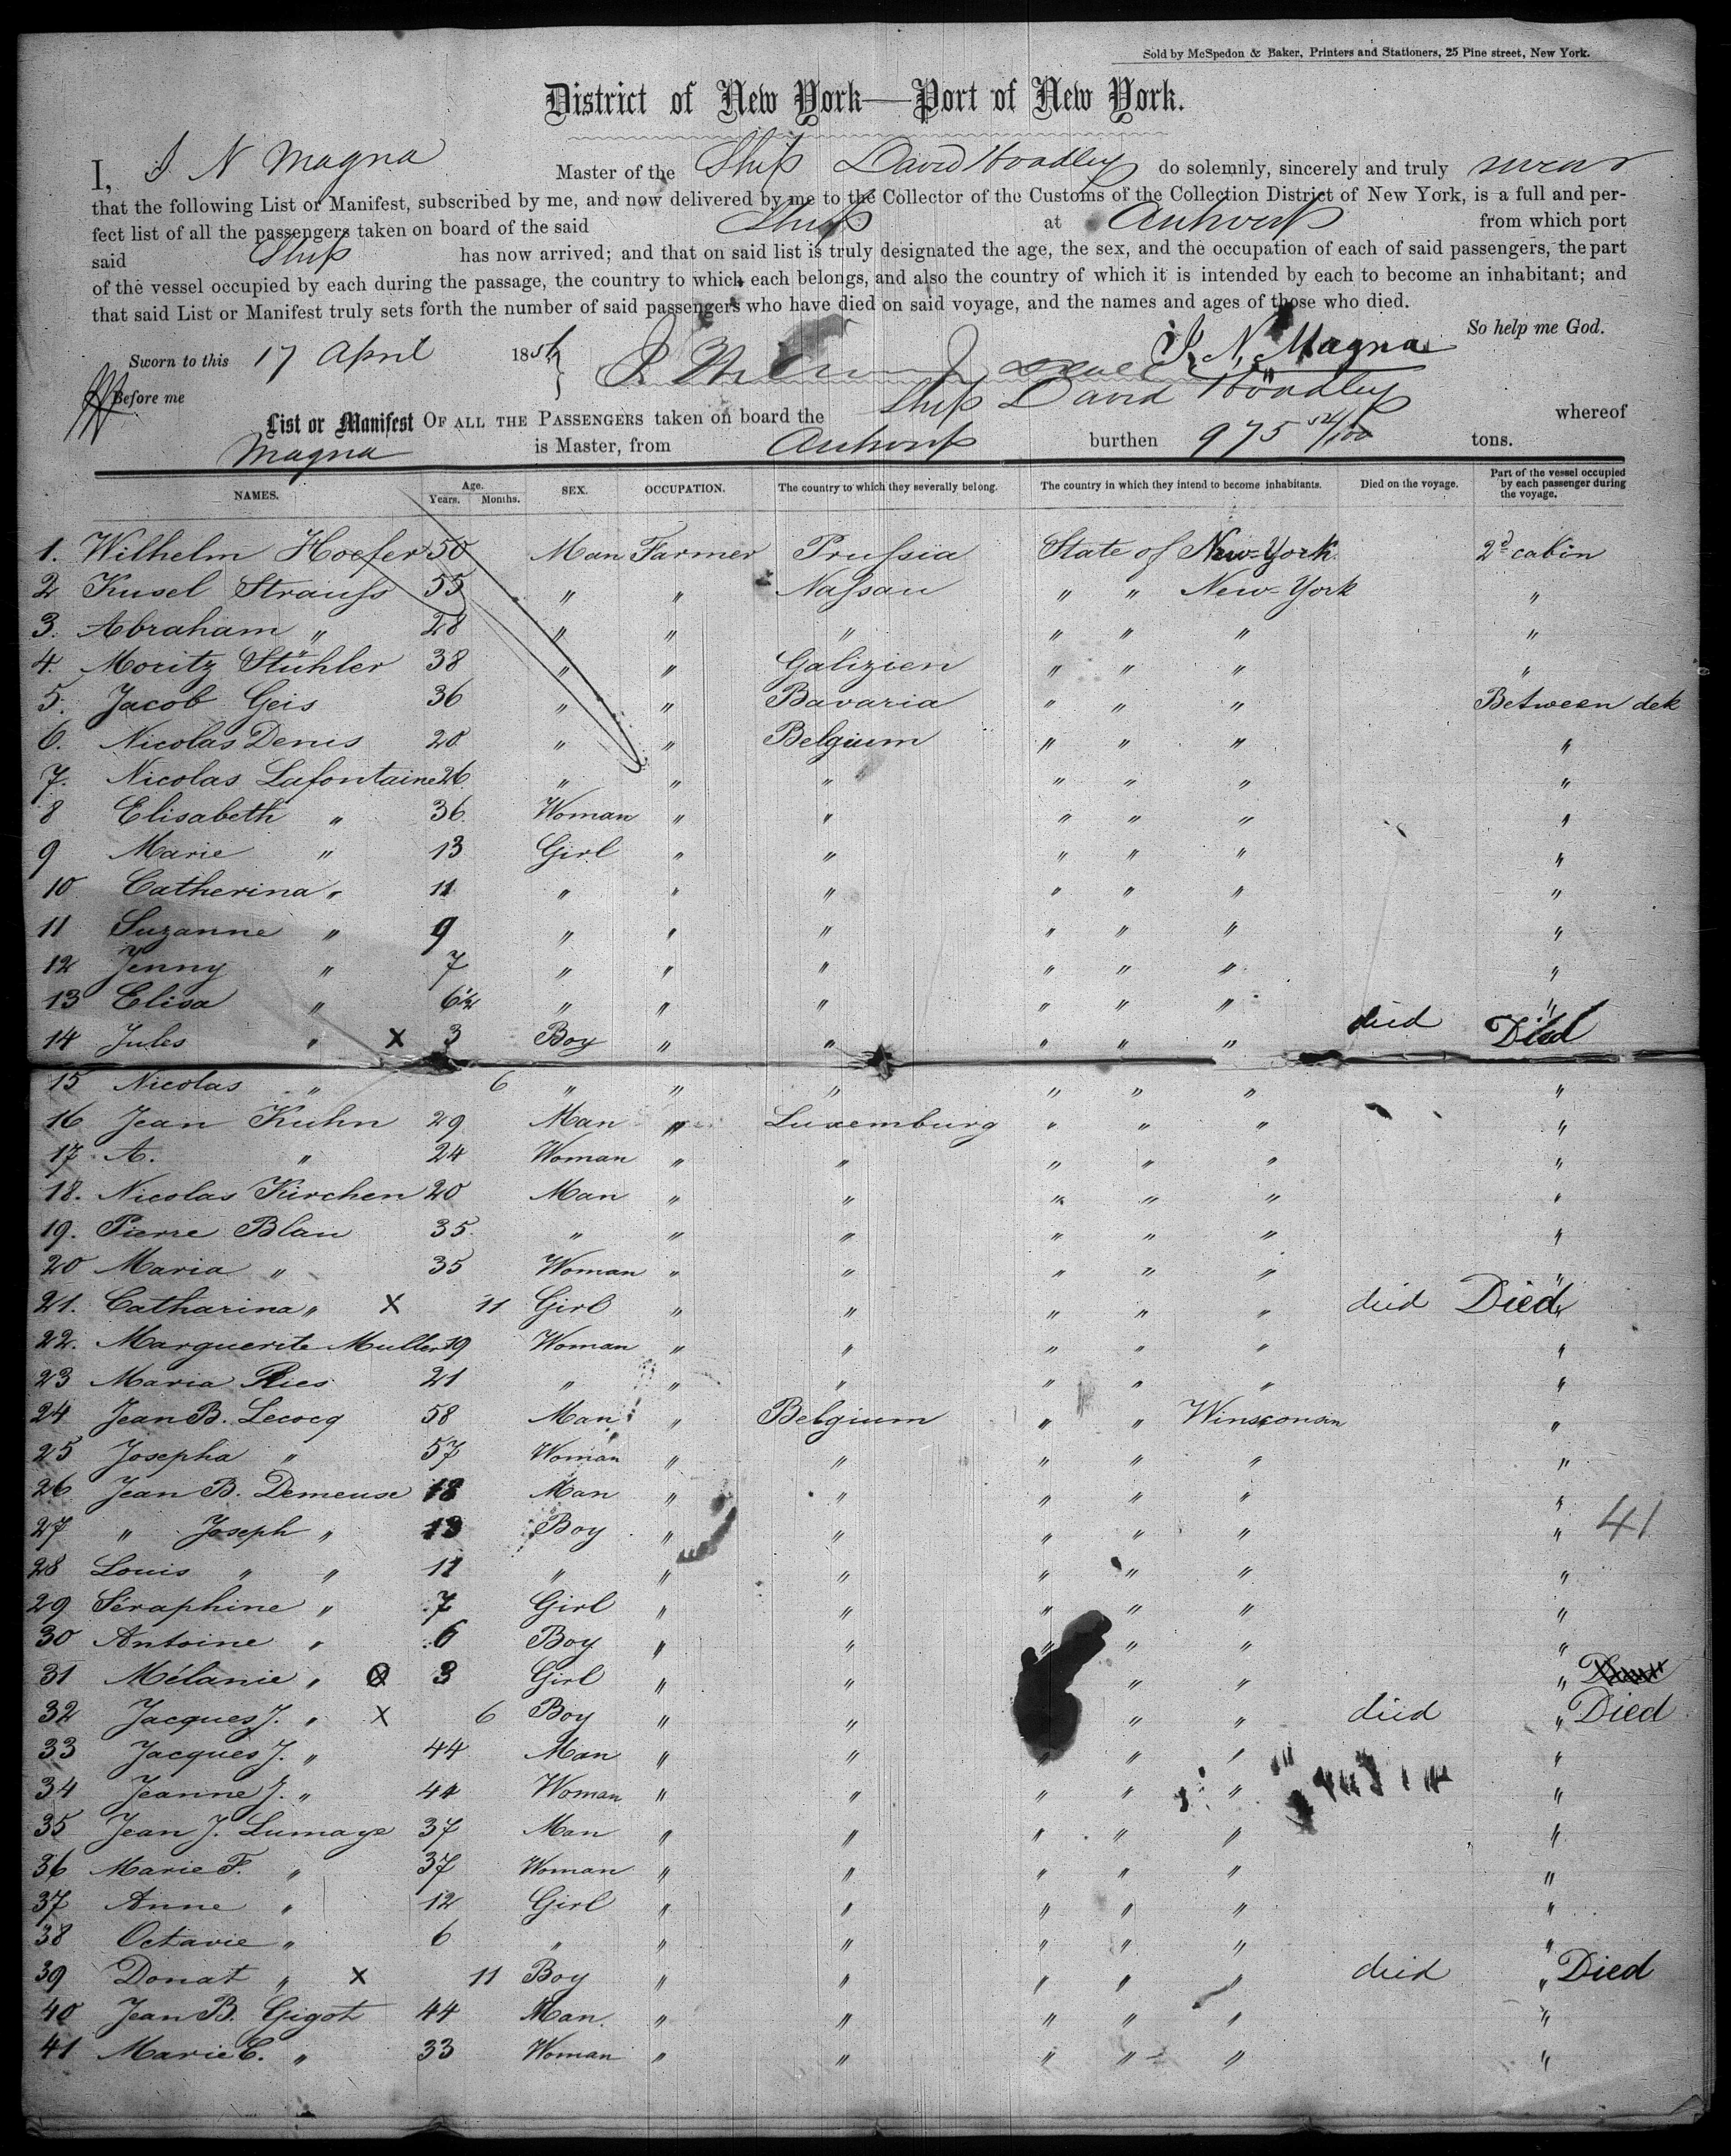 Sold by McSpedon & Baker, Printers and Stationers, 25 Pine street, New York.
District of New York—Port of New York.
I, J N Magna Master of the Ship David Hoadley do solemnly, sincerely and truly swear
that the following List or Manifest, subscribed by me, and now delivered by me to the Collector of the Customs of the Collection District of New York, is a full and per-
fect list of all the passengers taken on board of the said Ship at Antwerp from which port
said Ship has now arrived; and that on said list is truly designated the age, the sex, and the occupation of each of said passengers, the part
of the vessel occupied by each during the passage, the country to which each belongs, and also the country of which it is intended by each to become an inhabitant; and
that said List or Manifest truly sets forth the number of said passengers who have died on said voyage, and the names and ages of those who died.
So help me God.
Sworn to this 17 April 1856 J. N. Magna
Before me
List or Manifest OF ALL THE PASSENGERS taken on board the Ship David Hoadley whereof
Magna is Master, from Antwerp burthen 975 52/100 tons.
NAMES. Age. Years. Months. SEX. OCCUPATION. The country to which they severally belong. The country in which they intend to become inhabitants. Died on the voyage. Part of the vessel occupied by each passenger during the voyage.
1. Wilhelm Hoefer 50 Man Farmer Prussia State of New-York 2d cabin
2 Kusel Strauss 55 " " Nassau " " New-York "
3. Abraham " 28 " " " " " " "
4. Moritz Stühler 38 " " Galizien " " " "
5. Jacob Geis 36 " " Bavaria " " " Between dek
6. Nicolas Denis 20 " " Belgium " " " "
7. Nicolas Lafontaine 26 " " " " " " "
8 Elisabeth " 36 Woman " " " " " "
9 Marie " 13 Girl " " " " " "
10 Catherina " 11 " " " " " " "
11 Suzanne " 9 " " " " " " "
12 Jenny " 7 " " " " " " "
13 Elisa " 6½ " " " " " " "
14 Jules " X 3 Boy " " " " " died " Died
15 Nicolas " 6 " " " " " " "
16 Jean Kuhn 29 Man " Luxemburg " " " "
17. A. " 24 Woman " " " " " "
18. Nicolas Kirchen 20 Man " " " " " "
19. Pierre Blau 35 " " " " " " "
20 Maria " 35 Woman " " " " " "
21. Catharina " X 11 Girl " " " " " died " Died
22. Marguerite Muller 19 Woman " " " " " "
23 Maria Ries 21 " " " " " " "
24 Jean B. Lecocq 58 Man " Belgium " " Winsconsin "
25 Josepha " 57 Woman " " " " " "
26 Jean B. Demeuse 18 Man " " " " " "
27 " Joseph " 13 Boy " " " " " " 41
28 Louis " " 11 " " " " " " "
29 Séraphine " 7 Girl " " " " " "
30 Antoine " 6 Boy " " " " " "
31 Mélanie " 3 Girl " " " " "
32 Jacques J. " X 6 Boy " " " " died " Died
33 Jacques J. " 44 Man " " " " " "
34 Jeanne J. " 44 Woman " " " " " "
35 Jean J. Lumaye 37 Man " " " " " "
36 Marie F. " 37 Woman " " " " " "
37 Anne " 12 Girl " " " " " "
38 Octavie " 6 " " " " " " "
39 Donat " X 11 Boy " " " " " died " Died
40 Jean B. Gigot 44 Man " " " " " "
41 Marie C. " 33 Woman " " " " " "